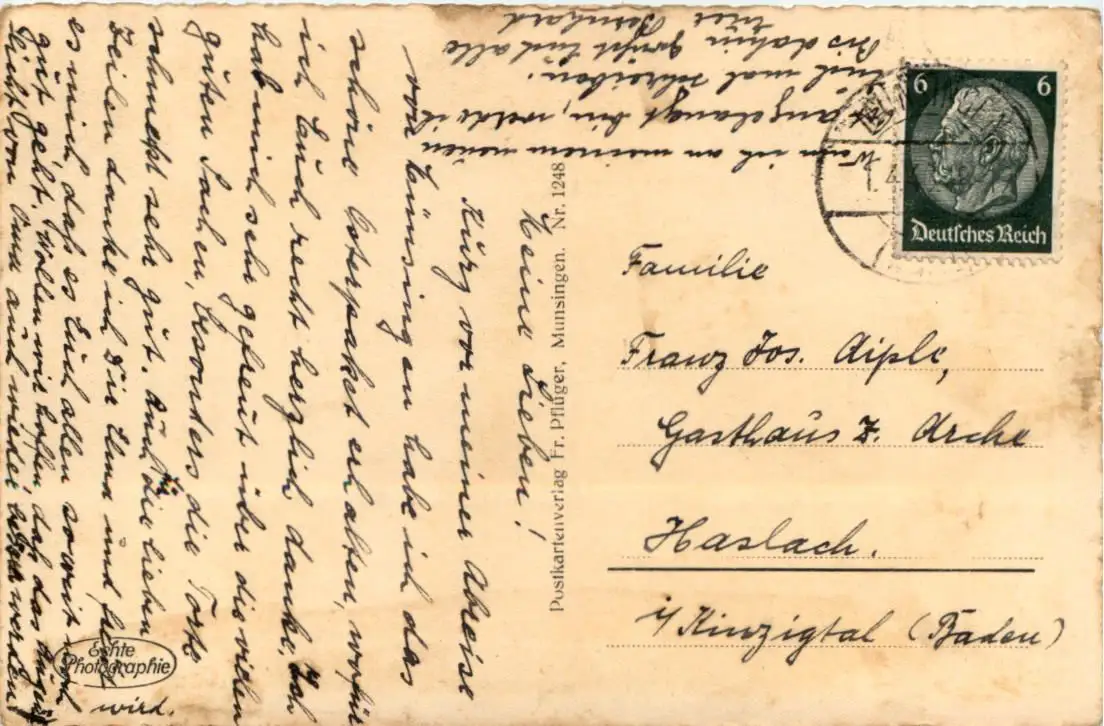 Meine Lieben!
Kurz vor meiner Abreise
von Münsingen habe ich das
schöne Osterpaket erhalten, wofür
ich Euch recht herzlich danke. Ich
hab mich sehr gefreut über die vielen
guten Sachen, besonders die Torte
schmeckt sehr gut. Auch die lieben
Zeilen danke ich Dir Elna und freut
es mich, daß es Euch allen soweit noch
gut geht, wollen wir hoffen, daß das
Licht von Oma auch wieder
wird.
Wenn ich an meinem neuen
angelangt bin, werde ich
Euch mal schreiben.
Bis dahin grüßt Euch alle
Euer Bernhard
Postkartenverlag Fr. Pflüger, Munsingen. Nr. 1248
Echte
Photographie
6 6
Deutsches Reich
Familie
Franz Jos. Aiple,
Gasthaus z. Arche
Haslach.
i/Kinzigtal (Baden)